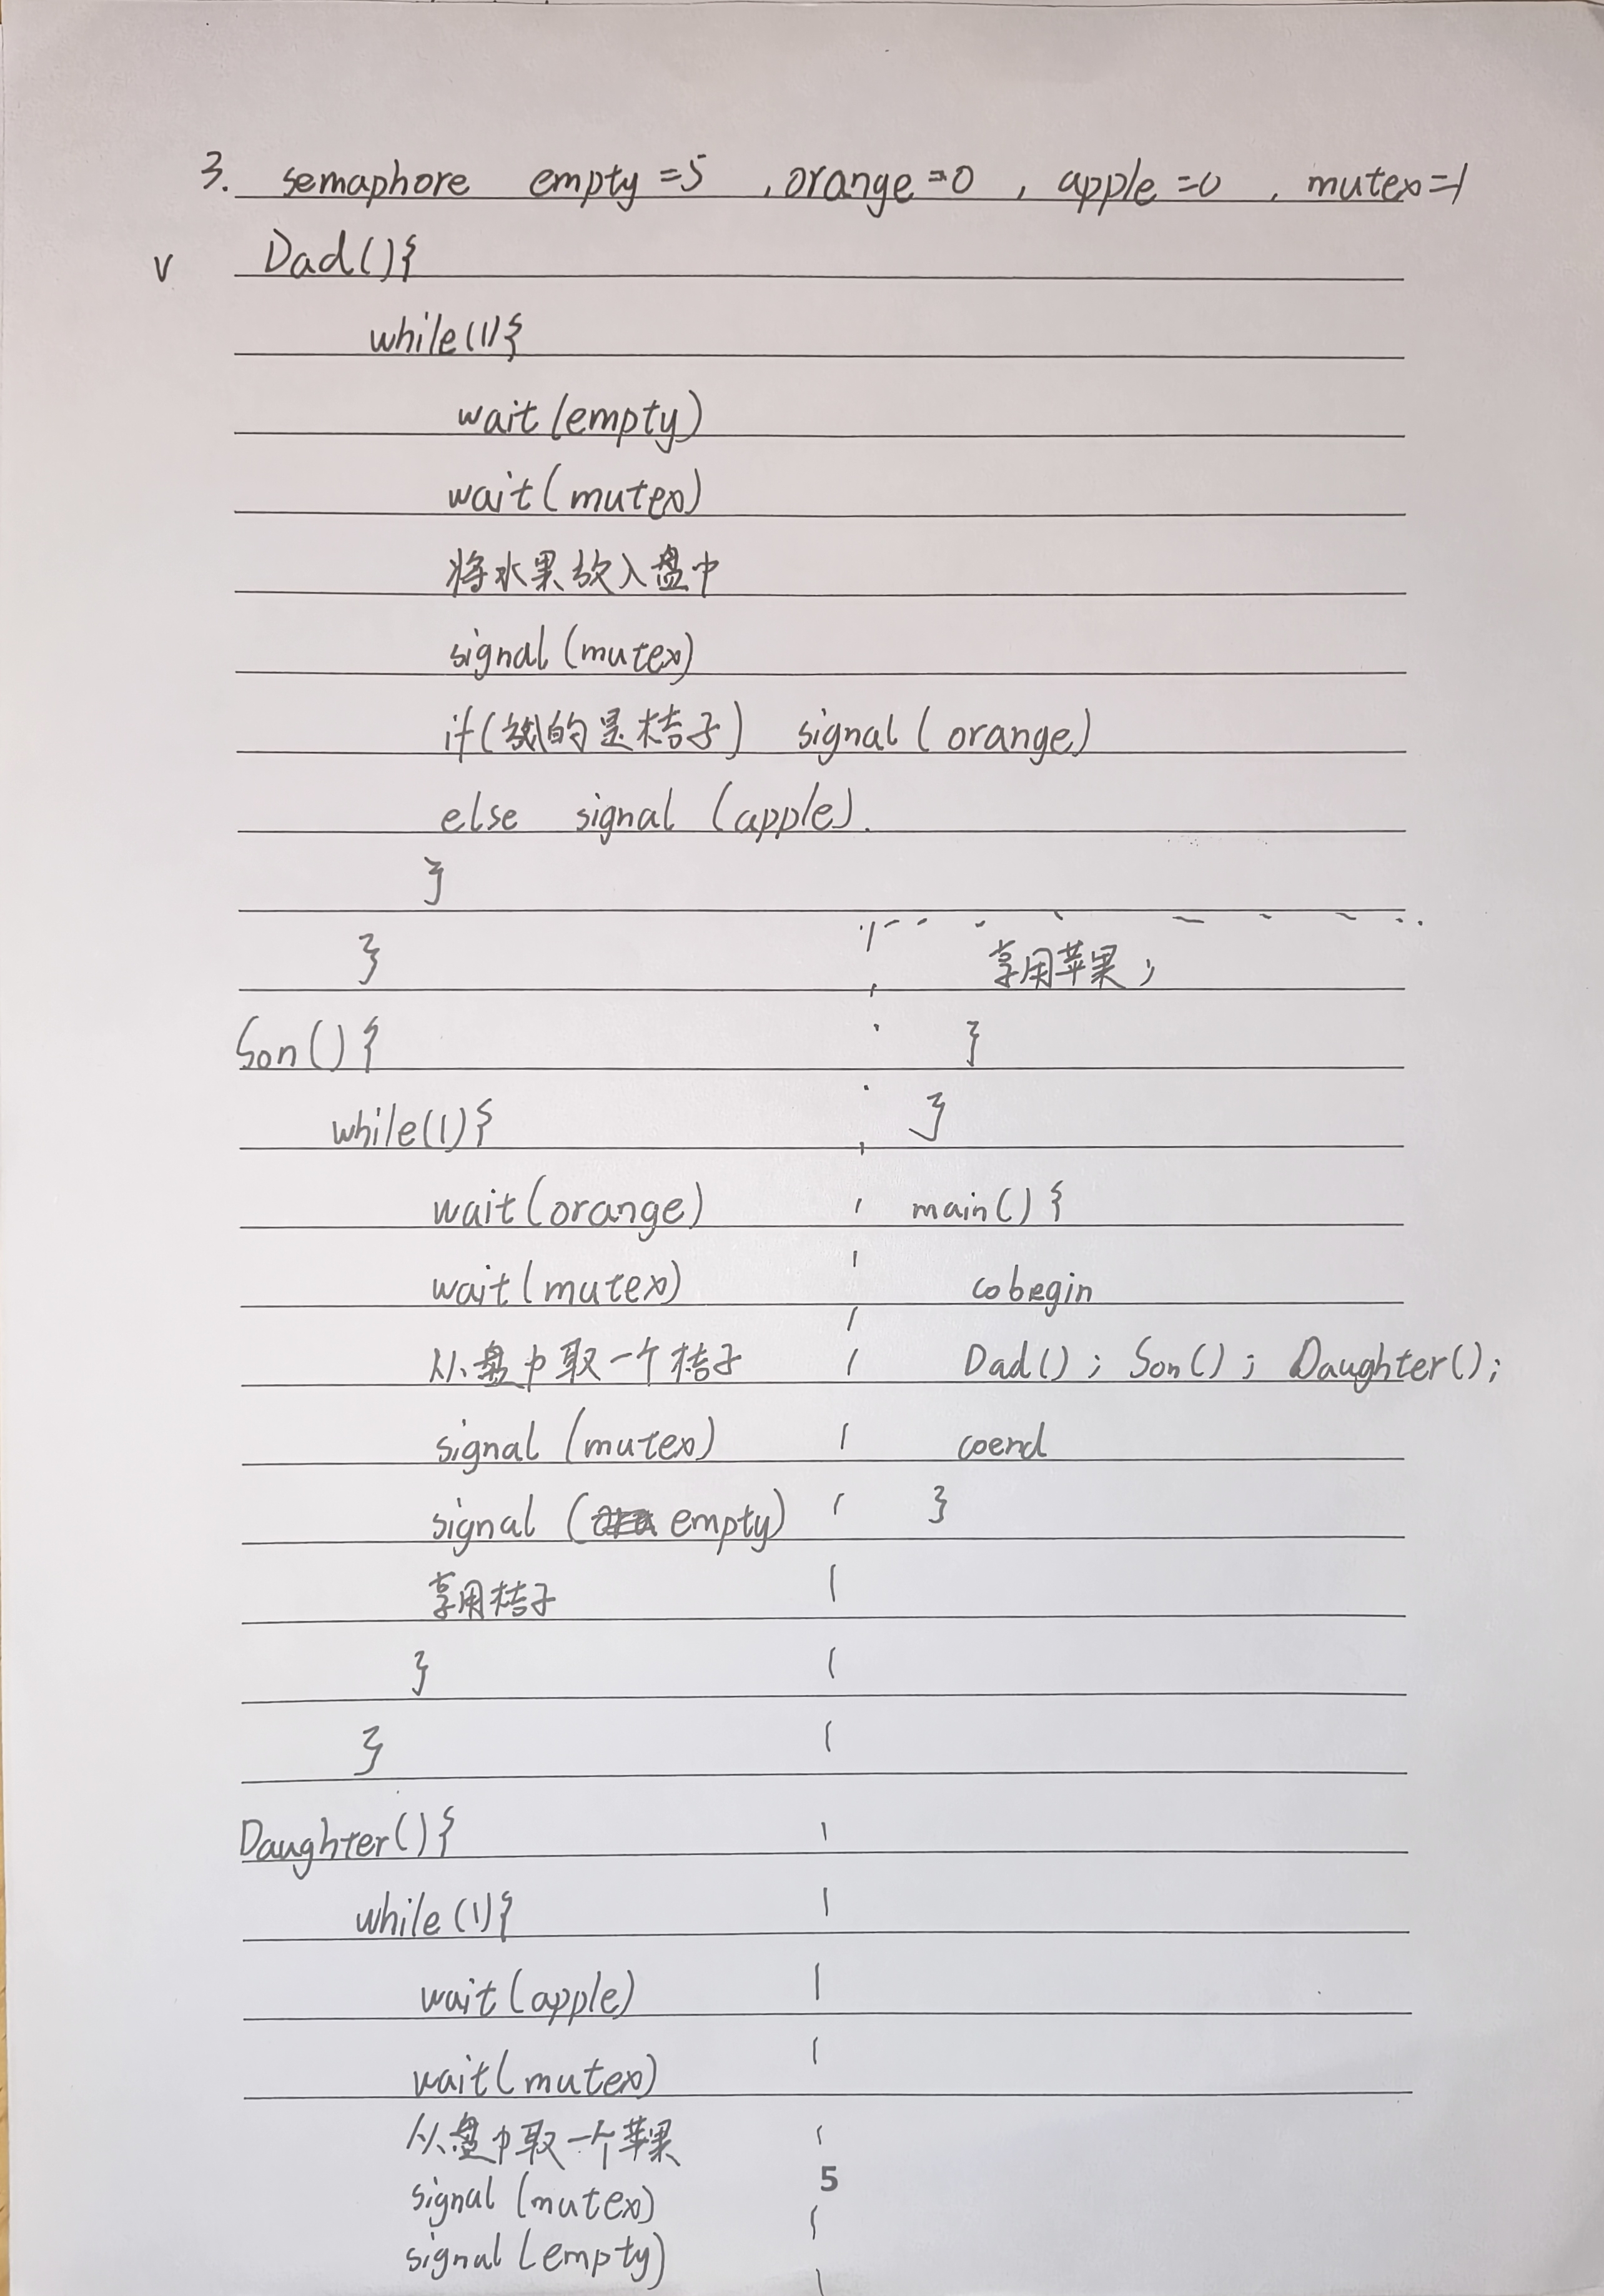 3. semaphore empty=5 , orange=0 , apple=0 , mutex=1
v Dad(){
while(1){
wait(empty)
wait(mutex)
将水果放入盘中
signal(mutex)
if(放的是桔子) signal(orange)
else signal(apple).
}
}
Son(){
while(1){
wait(orange)
wait(mutex)
从盘中取一个桔子
signal(mutex)
signal(empty)
享用桔子
}
}
Daughter(){
while(1){
wait(apple)
wait(mutex)
从盘中取一个苹果
signal(mutex)
signal(empty)
享用苹果;
}
}
main(){
cobegin
Dad(); Son(); Daughter();
coend
}
5